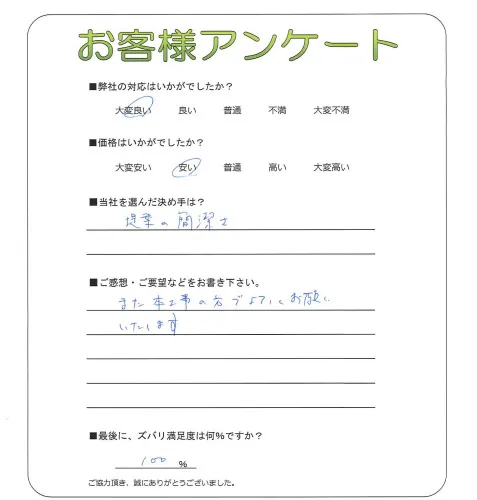 お客様アンケート
■弊社の対応はいかがでしたか？
大変良い 良い 普通 不満 大変不満
■価格はいかがでしたか？
大変安い 安い 普通 高い 大変高い
■当社を選んだ決め手は？
提案の簡潔さ
■ご感想・ご要望などをお書き下さい。
また本工事の方でよろしくお願い
いたします
■最後に、ズバリ満足度は何%ですか？
100 %
ご協力頂き、誠にありがとうございました。